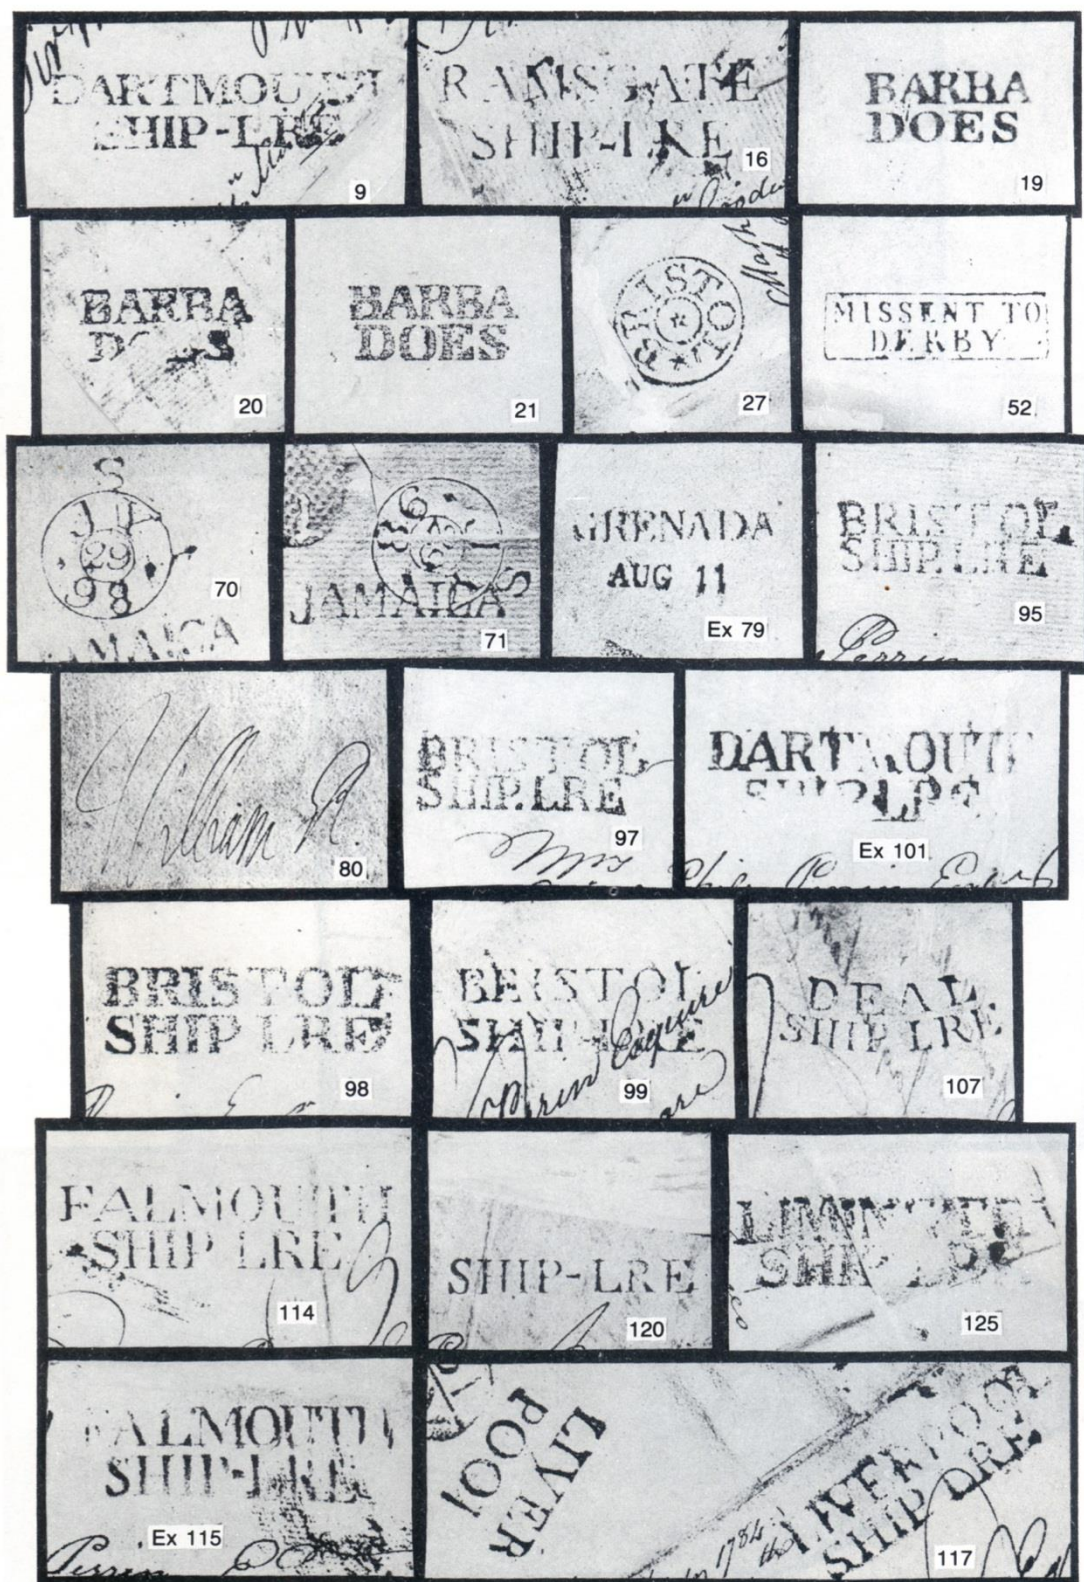 DARTMOUTH
SHIP-LRE
9
RAMSGATE
SHIP-LRE
16
BARBA
DOES
19
BARBA
20
BARBA
DOES
21
BRISTOL
27
MISSENT TO
DERBY
52
S
29
98
JAMAICA
70
JAMAICA
S
71
GRENADA
AUG 11
Ex 79
BRISTOL
SHIP.LRE
Perrin
95
William R
80
BRISTOL
SHIP.LRE
97
DARTMOUTH
SHIP-LRE
Ex 101
BRISTOL
SHIP LRE
98
BRISTOL
SHIP-LRE
Perrin Esquire
99
DEAL
SHIP LRE
107
FALMOUTH
SHIP LRE
114
SHIP-LRE
120
SHIP
125
FALMOUTH
SHIP-LRE
Ex 115
Perrin
LIVER
POOL
LIVERPOOL
SHIP LRE
1784
117